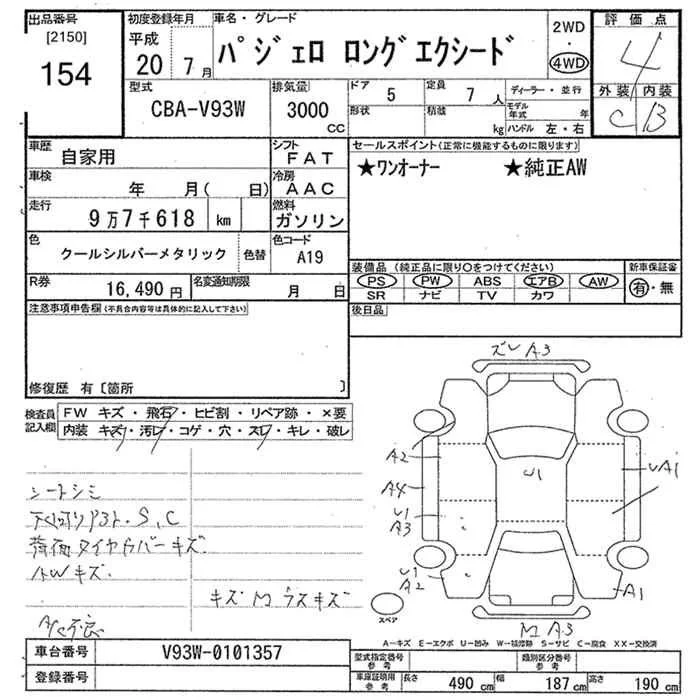 出品番号 初度登録年月 車名・グレード 2WD 評価点
[2150] 平成 パジェロ ロングエクシード ・ 4
154 20年 7月 4WD 外装 内装
型式 排気量 ドア 5 定員 7人 ディーラー・並行 C B
CBA-V93W 3000 CC 形状 積載 kg モデル年式 年
ハンドル 左・右
車歴 自家用 シフト FAT セールスポイント(正常に機能するものに限ります)
車検 年 月( 日) 冷房 AAC ★ワンオーナー ★純正AW
走行 9万7千618 km 燃料 ガソリン
色 クールシルバーメタリック 色替 色コード A19
装備品 (純正品に限り○をつけてください) 新車保証書
R券 16,490円 名変通知期限 月 日 PS PW ABS エアB AW 有・無
SR ナビ TV カワ
注意事項申告欄(不具合内容等は具体的に記入して下さい) 後日品
修復歴 有〔箇所 〕
検査員記入欄 FW キズ・飛石・ヒビ割・リペア跡・×要
内装 キズ・汚レ・コゲ・穴・スレ・キレ・破レ
ズレ A3
A2
U1
UA1
A4
U1
A3
U1
A2
A1
シートシミ
下回り S,C
荷室タイヤカバーキズ
AWキズ
キズ M ラスキズ
スペア
M A3
A-キズ E-エクボ U-凹み W-補修跡 S-サビ C-腐食 XX-交換済
車台番号 V93W-0101357 型式指定番号 参考 類別区分番号 参考
登録番号 車庫証明用 参考 長さ 490cm 幅 187cm 高さ 190cm